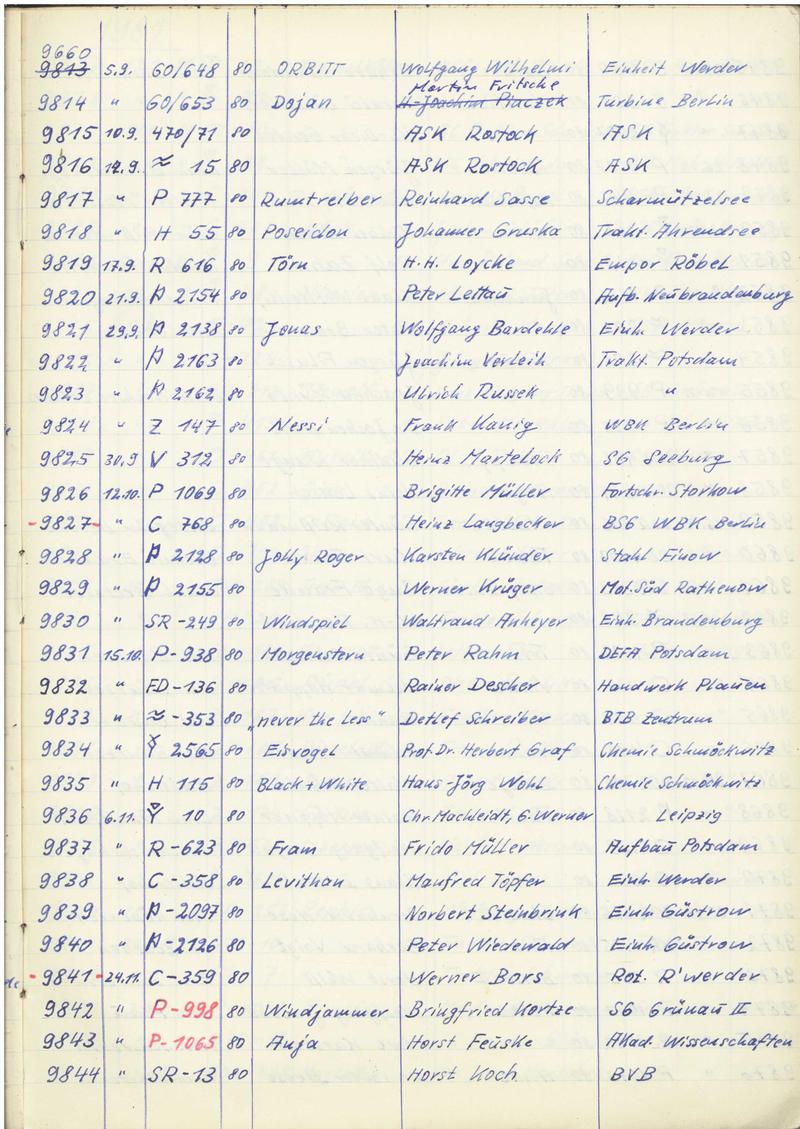 9660
9813 5.9. 60/648 80 ORBITT Wolfgang Wilhelmi Einheit Werder
Martin Fritsche
9814 " 60/653 80 Dojan H-Joachim Piaczek Turbine Berlin
9815 10.9. 470/71 80 ASK Rostock ASK
9816 12.9. ≈ 15 80 ASK Rostock ASK
9817 " P 777 80 Rumtreiber Reinhard Sasse Scharmützelsee
9818 " H 55 80 Poseidon Johannes Gruska Trakt. Ahrendsee
9819 17.9. R 616 80 Törn H.H. Loycke Empor Röbel
9820 21.9. P 2154 80 Peter Lettau Aufb. Neubrandenburg
9821 29.9. P 2138 80 Jonas Wolfgang Bardehle Einh. Werder
9822 " P 2163 80 Joachim Verleih Trakt. Potsdam
9823 " P 2162 80 Ulrich Russek "
9824 " Z 147 80 Nessi Frank Kanig WBK Berlin
9825 30.9 V 312 80 Heinz Martelock SG. Seeburg
9826 12.10. P 1069 80 Brigitte Müller Fortschr. Storkow
-9827- " C 768 80 Heinz Langbecker BSG WBK Berlin
9828 " P 2128 80 Jolly Roger Karsten Klünder Stahl Finow
9829 " P 2155 80 Werner Krüger Mot. Süd Rathenow
9830 " SR -249 80 Windspiel Waltraud Anheyer Einh. Brandenburg
9831 15.10. P-938 80 Morgenstern Peter Rahm DEFA Potsdam
9832 " FD-136 80 Rainer Descher Handwerk Plauen
9833 " ≈ -353 80 „never the less" Detlef Schreiber BTB Zentrum
9834 " Y 2565 80 Eisvogel Prof. Dr. Herbert Graf Chemie Schmöckwitz
9835 " H 115 80 Black + White Hans-Jörg Wohl Chemie Schmöckwitz
9836 6.11. Y 10 80 Chr. Machleidt, G. Werner Leipzig
9837 " R -623 80 Fram Frido Müller Aufbau Potsdam
9838 " C -358 80 Levithan Manfred Töpfer Einh. Werder
9839 " P-2097 80 Norbert Steinbrink Einh. Güstrow
9840 " P-2126 80 Peter Wiedewald Einh. Güstrow
-9841- 24.11. C-359 80 Werner Bors Rot. R'werder
9842 " P-998 80 Windjammer Bringfried Kortze SG Grünau II
9843 " P-1065 80 Anja Horst Feuske Akad. Wissenschaften
9844 " SR-13 80 Horst Koch BVB